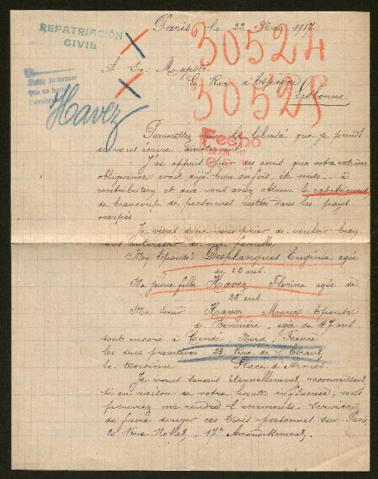 Paris, le 22 Mai 1917
REPATRIACIÓN
CIVIL
30524
30525
A Sa Majesté
Le Roi d'Espagne
Havez
Permettez moi la liberté que je prends
de vous écrire directement.
J'ai appris par des amis que votre extrême
obligeance avait déjà bien
et que vous aviez obtenu le rapatriement
de beaucoup de personnes restées dans les pays
occupés
Je viens donc vous prier de vouloir bien
de ma famille.
Mon Epouse: Desplanques Eugénie agée
de ans.
Ma jeune fille Havez Florine agée de
ans.
Ma sœur Havez Marie Epouse
agée de 47 ans
sont encore à Condé Nord France
les deux premières 22 Rue de l'Escaut
la troisième Place d'Armes.
Je vous serais éternellement reconnaissant
si en raison de votre haute influence, vous
pouviez me rendre l'immense service
de faire diriger ces trois personnes sur Paris,
20 Rue Nollet, 17e Arrondissement.